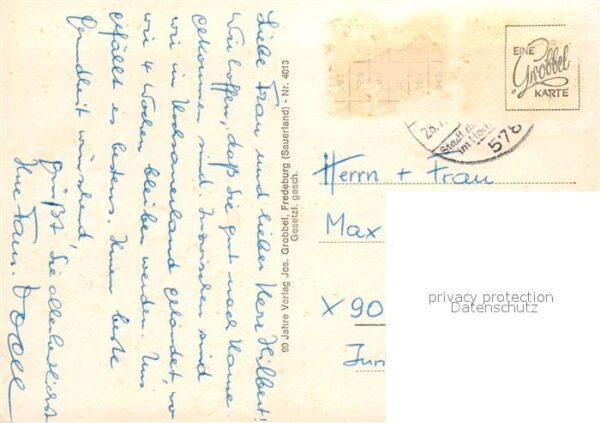 Liebe Frau und lieber Herr Hilbert!
Wir hoffen, daß Sie gut nach Hause
gekommen sind. Inzwischen sind
wir im Hochsauerland gelandet, wo
wir 4 Wochen bleiben werden. Uns
gefällt es bestens. Ihnen beste
Gesundheit wünschend,
grüßt Sie allerherzlichst
Ihre Fam.
60 Jahre Verlag Jos. Grobbel, Fredeburg (Sauerland) - Nr. 4013
Gesetzl. gesch.
EINE
"Grobbel"
KARTE
28.7
578
Herrn + Frau
Max
X 90
privacy protection
Datenschutz